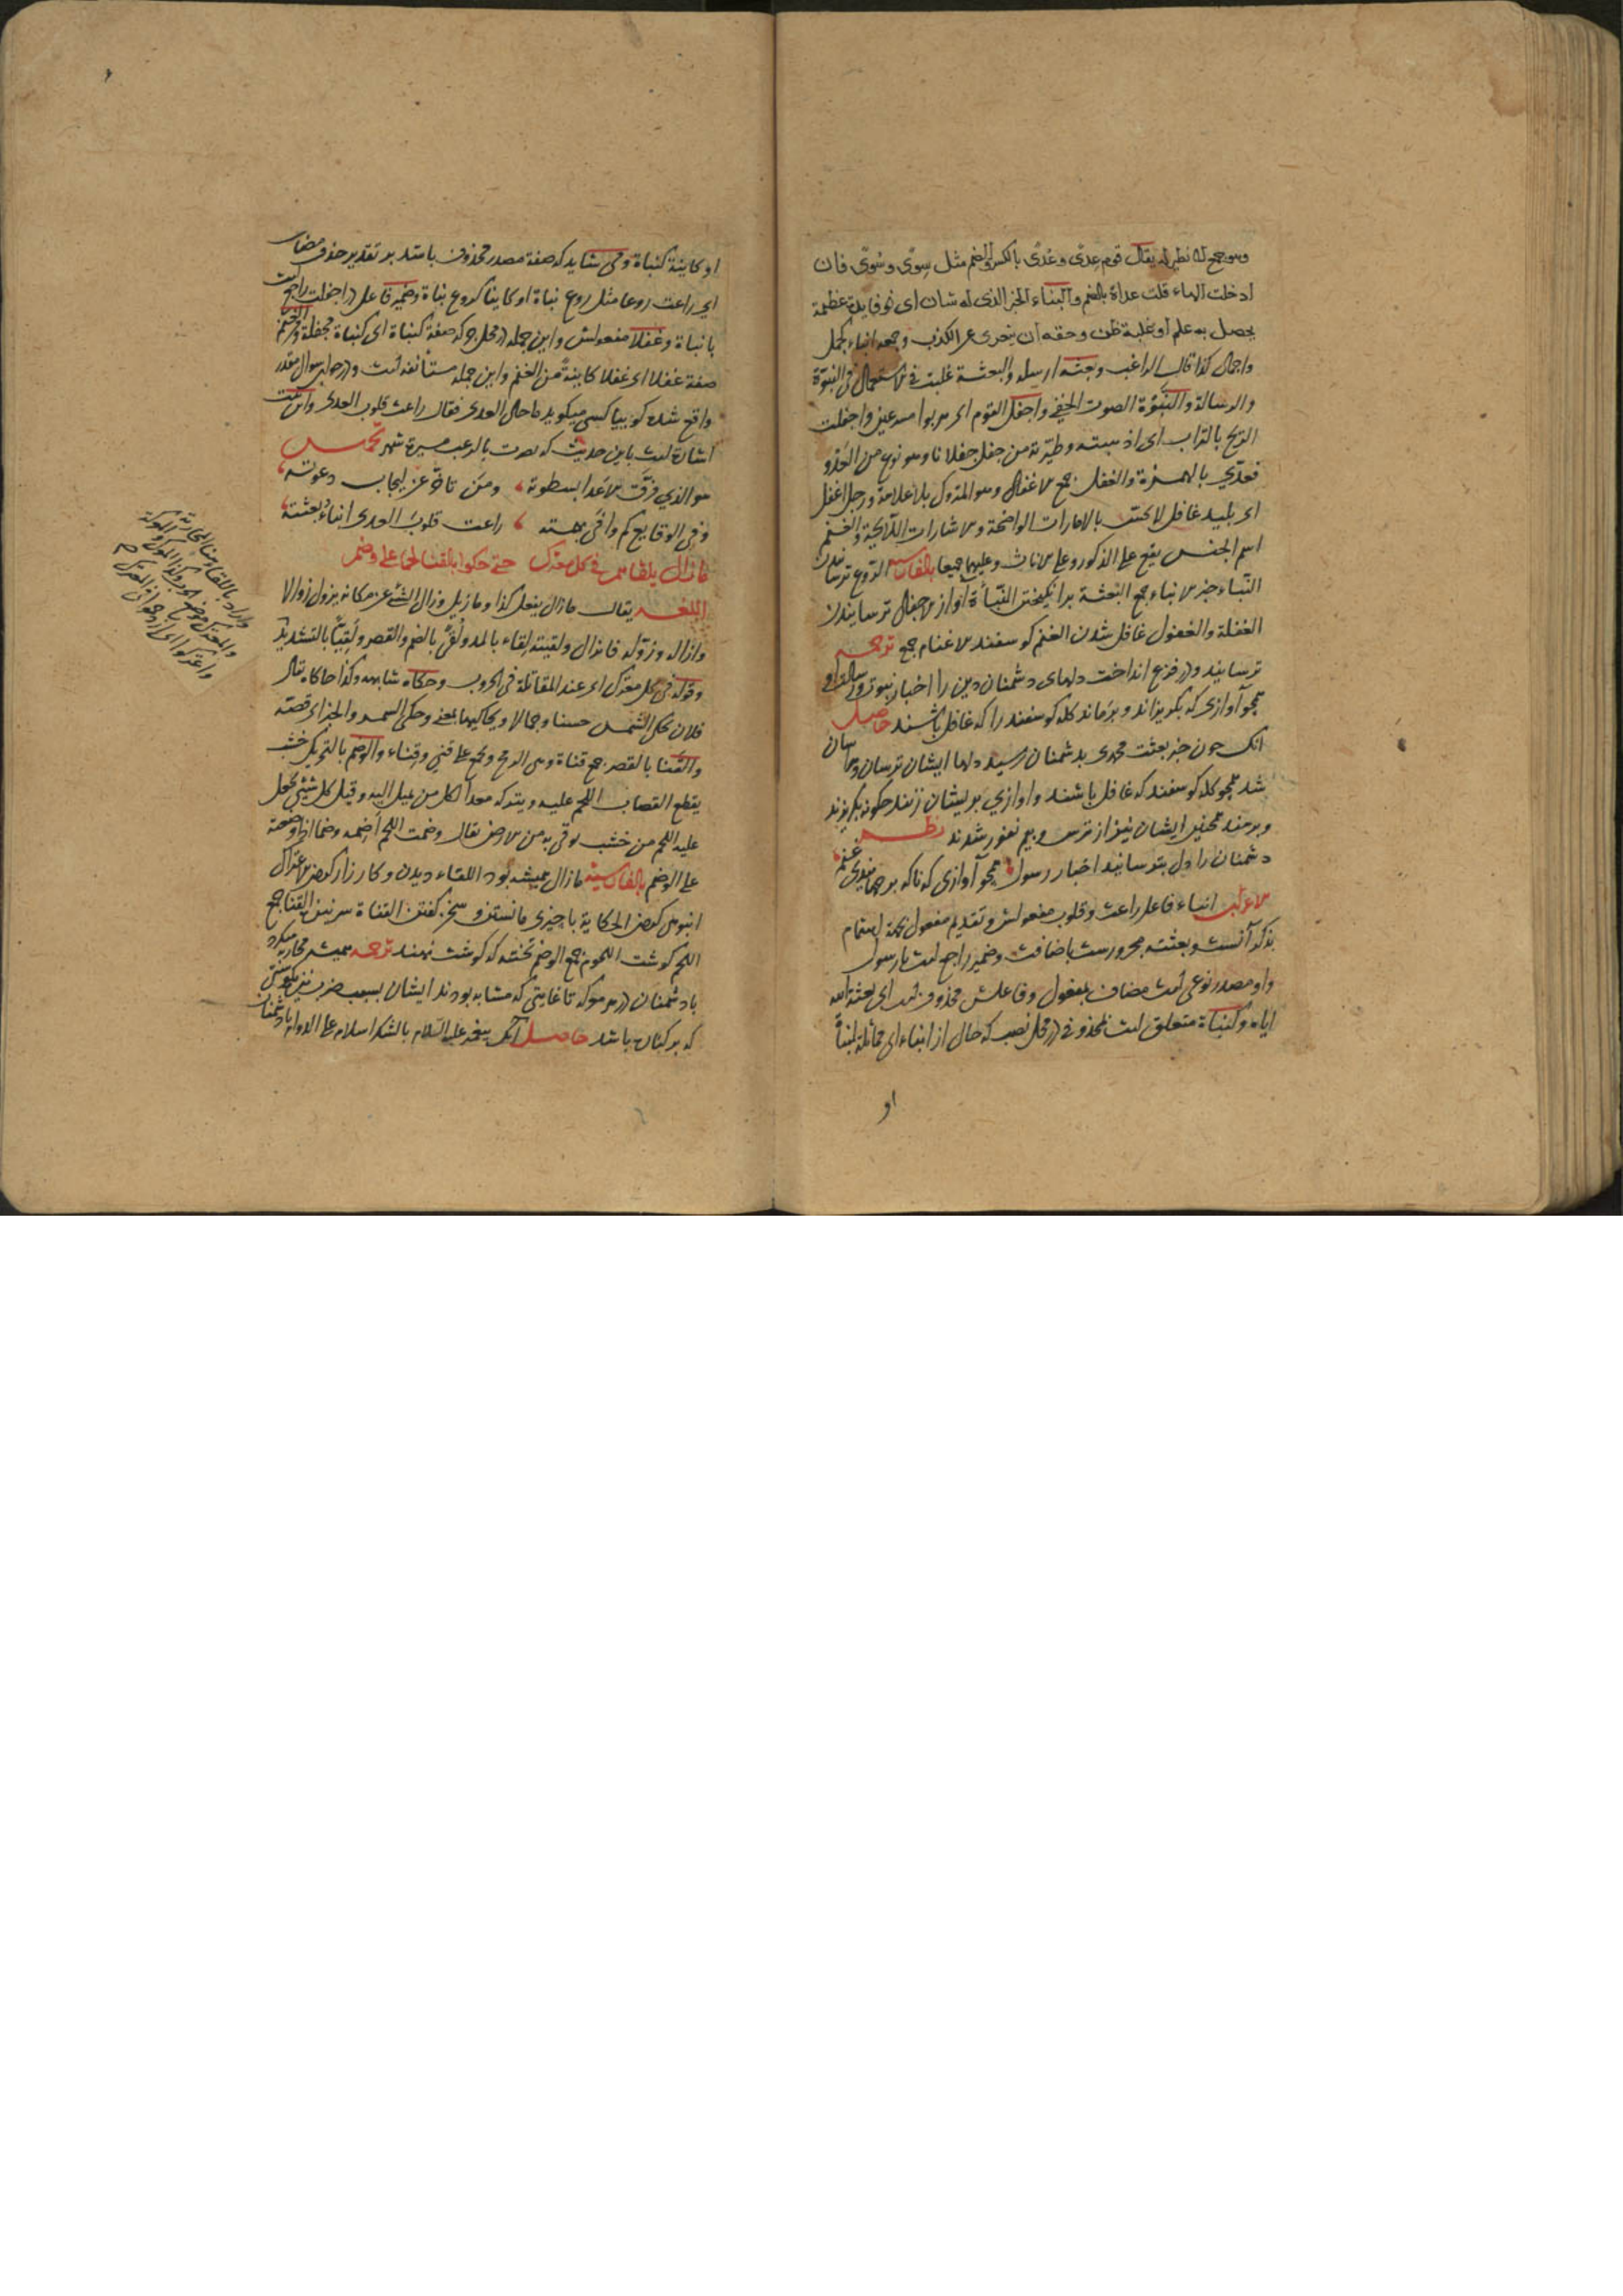 وهو جمع لا نظير له يقال قوم عِدًى وعُدًى بالكسر والضم مثل سِوًى وسُوًى فان
ادخلت الهاء قلت عداة بالضم والنباء الخبر الذى له شان اى ذو فايدة عظيمة
يحصل به علم او غلبة ظن وحقه ان يتعرى عن الكذب وجمعه انباء كجمل
واجمال كذا قال الراغب وبعثه ارسله والبعثة غلبت فى الاستعمال فى النبوة
والرسالة والنبوة الصوت الخفى واجفل القوم اى هربوا مسرعين واجفلت
الريح بالتراب اى اذهبته وطيرته من جفل جفلانا وهو نوع من العدو
فعدّي بالهمزة والغفل جمع الاغفال وهو المتروك بلا علامة ورجل اغفل
اى بليد غافل لا يكترث بالامارات الواضحة والاشارات اللايحة والغنم
اسم الجنس يقع على الذكور وعلى الاناث وعليهما جميعا بالفارسية الروع ترسانيدن
النباء خبر الانباء جمع البعثة برانگيختن النبأة آواز الاجفال ترسانيدن
الغفلة والغفول غافل شدن الغنم كوسفند الاغنام جمع ترجمه
ترسانيد ودر فزع انداخت دلهاى دشمنان دين را اخبار نبوت ورسالت او
همچو آوازى كه بگريزاند و برماند گله كوسفند را كه غافل باشند حاصل
انك چون خبر بعثت محمدى بدشمنان رسيد دلها ايشان ترسان وهراسان
شد همچو گله كوسفند كه غافل باشند واوازي بريشان زنند چگونه بگريزند
وبرمند همچنين ايشان نيز از ترس وبيم نفور شدند نظم
دشمنان را دل بترسانيد اخبار رسول همچو آوازى كه ناگه برجهاند غنم
الاعراب انباء فاعل راعت وقلوب مفعولش وتقديم مفعول بجهة اهتمام
بذكر آنست وبعثته مجرورست باضافت وضمير راجع است بارسول
واو مصدر نوعى است مضاف بمفعول وفاعلش محذوف است اى بعثة الله
اياه وكنباة متعلق است بمحذوفى در محل نصب كه حال از انباء اى مماثلة لنبأة
او
او كاينة كنباة ومى شايد كه صفة مصدر محذوف باشد بر تقدير حذف مضاف
اى راعت روعا مثل روع نباة او كاينا كروع نباة وضمير فاعل در اجفلت راجع است
بانباة وغفلا مفعولش واين جمله در محل جر كه صفة كنباة اى كنباة مجفلة ومن الغنم
صفة غفلا اى غفلا كاينة من الغنم واين جمله مستأنفه است ودر جواب سوال مقدر
واقع شده گوييا كسى ميگويد ما حال العدى فقال راعت قلوب العدى واين بيت
اشارة است باين حديث كه نصرت بالرعب مسيرة شهر تخميس
هو الذي فرّق الاعدا بسطوته ومن تاخّر عن ايجاب دعوته
وفى الوقايع كم وافى بهمته راعت قلوب العدى انباء بعثته
ما زال يلقاهم فى كل معترك حتى حكوا بالقنا لحما على وضم
اللغه يقال ما زال يفعل كذا وما زيل وزال الشئ عن مكانه يزول زوالا
وازاله وزوّله فانزال ولقيته لقاء بالمد ولُقًى بالضم والقصر ولُقِيًّا بالتشديد
وقوله فى كل معترك اى عند المقاتلة فى الحروب وحكاه شابهه وكذا حاكاه يقال
فلان يحكى الشمس حسنا وجمالا ويحاكيها بمعنى وحكى السمر والخبر اى قصته
والقنا بالقصر جمع قناة وهى الرمح وجمع على قنى وقناء والوضم بالتحريك خشب
يقطع القصاب اللحم عليه ويتركه معدا لكل من يميل اليه وقيل كل شئ يجعل
عليه اللحم من خشب يوقى به من الارض يقال وضمت اللحم أضمه وضما اذا وضعته
على الوضم بالفارسية ما زال هميشه بود اللقاء ديدن وكارزار كردن الاعتراك
انبوهى كردن الحكاية با چيزى مانستن و سخن گفتن القناة سر نيزه القنا جمع
اللحم گوشت اللحوم جمع الوضم تخته كه گوشت نهند ترجمه هميشه محاربه ميكرد
با دشمنان در هر معركه تا غايتى كه مشابه بودند ايشان بسبب ضرب نيزه بگوشتى
كه بر كنان باشد حاصل آنك پيغمبر عليه السلام بالشكر اسلام على الدوام با دشمنان
واراد باللقاء هنا المحاربة
والمعترك موضع الحرب وكذا المعركة